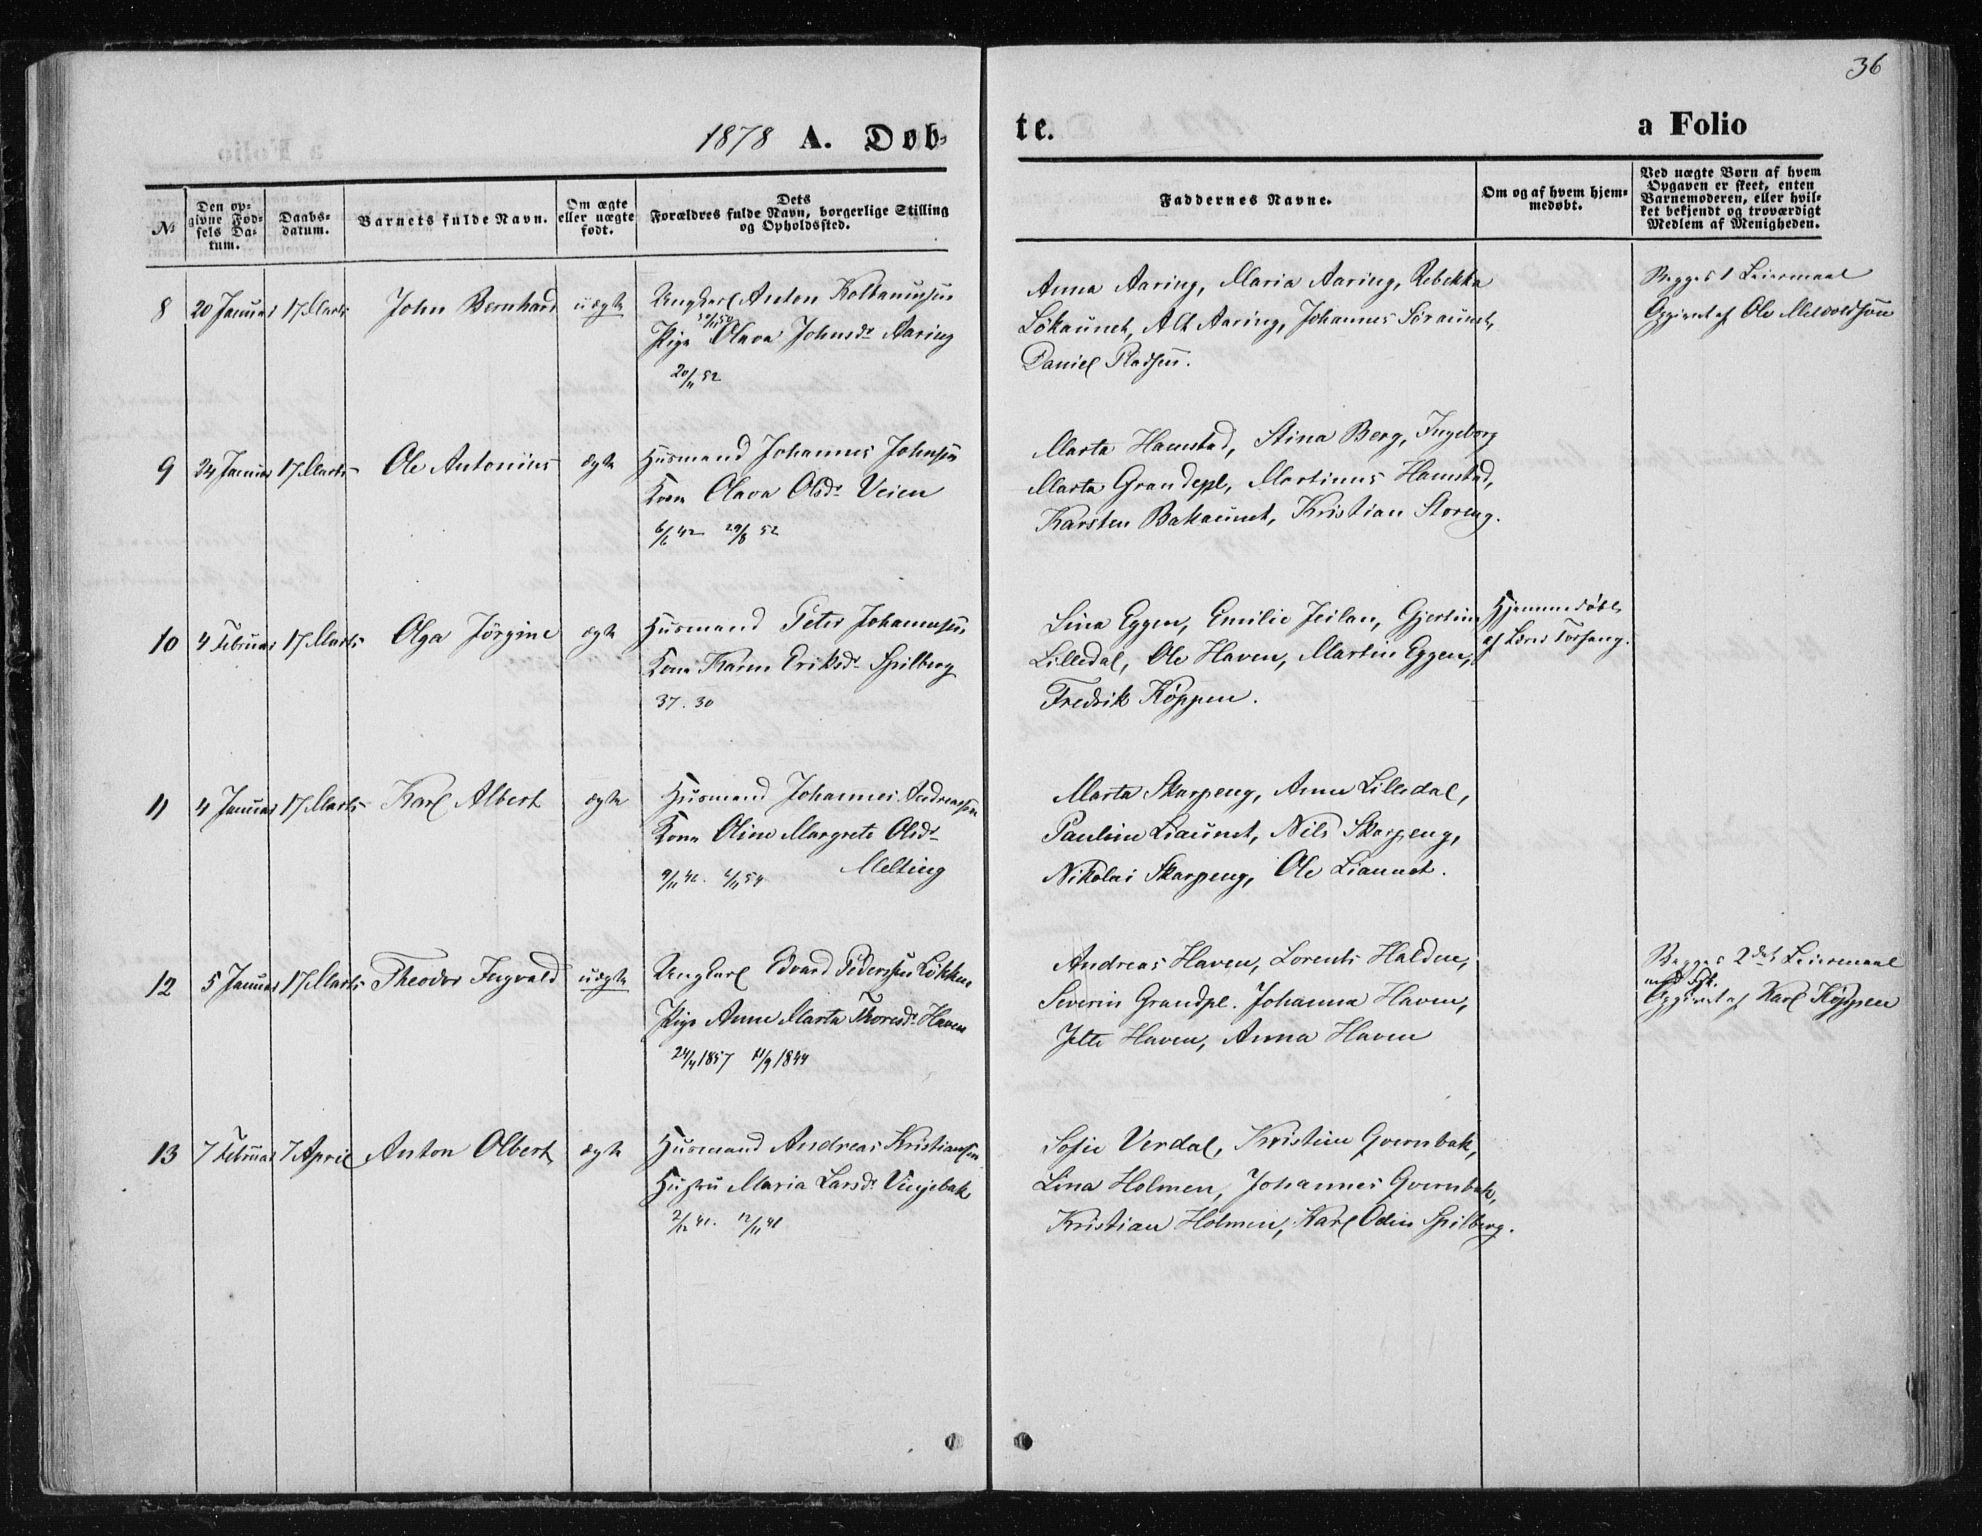 36
1878 A. Døb-
te.
a Folio
№
Den op-
givne Fød-
sels Da-
tum.
Daabs-
datum.
Barnets fulde Navn.
Om ægte
eller uægte
født.
Dets
Forældres fulde Navn, borgerlige Stilling
og Opholdssted.
Faddernes Navne.
Om og af hvem hjem-
medøbt.
Ved uægte Børn af hvem
Opgaven er skeet, enten
Barnemoderen, eller hvil-
ket bekjendt og troværdigt
Medlem af Menigheden.
8 20 Januar 17 Marts John Bernhard uægte
Ungkarl Anton
Pige Olava Johnsd. Aaring
20/11 52
Anna Aaring, Maria Aaring, Rebekka
Løkaunet, Alt Aaring, Johannes Söraunet,
Daniel Pladsen.
Begges 1 Leiermaal
Opgivet af Ole
9 24 Januar 17 Marts Ole Antonius ægte
Husmand Johannes Johnsen
Kone Olava Olsdr. Veien
6/6 42 29/8 52
Marta Hamstad, Stina Berg, Ingeborg
Marta Grandepl, Martinus Hamstad,
Karsten Bakaunet, Kristian Storeng.
10 4 Februar 17 Marts Olga Jörgine ægte
Husmand Peter Johannsen
Kone Karen Eriksdr. Spilberg
37. 30
Lina Eggen, Emilie Jeilan, Gjertine
Lilledal, Ole Haven, Martin Eggen,
Fredrik Köppen.
Hjemmedøbt
af Lærer Forfang.
11 4 Januar 17 Marts Karl Albert ægte
Husmand Johannes Andreassen
Kone Oline Margrete Olsdr.
Melting
Marta Skarpeng, Anne Lilledal,
Pauline Liaunet, Nils Skarpeng,
Nikolai Skarpeng, Ole Liaunet.
12 5 Januar 17 Marts Theodor Ingvald uægte
Ungkarl Edvard Pedersen Løkken
Pige Anne Marta Thoresdr. Haven
24/4 1857 11/9 1844
Andreas Haven, Lorents Halden,
Severin Grandpl. Johanna Haven,
Jette Haven, Anna Haven
Begges 2det Leiermaal
Opgivet af Karl Köppen
13 7 Februar 7 April Anton Olbert ægte
Husmand Andreas Kristiansen
Hustru Maria Larsdr. Vinjebak
Sofie Verdal, Kristine Qvernbak,
Lina Holmen, Johannes Qvernbak,
Kristian Holmen, Karl Odin Spilberg.